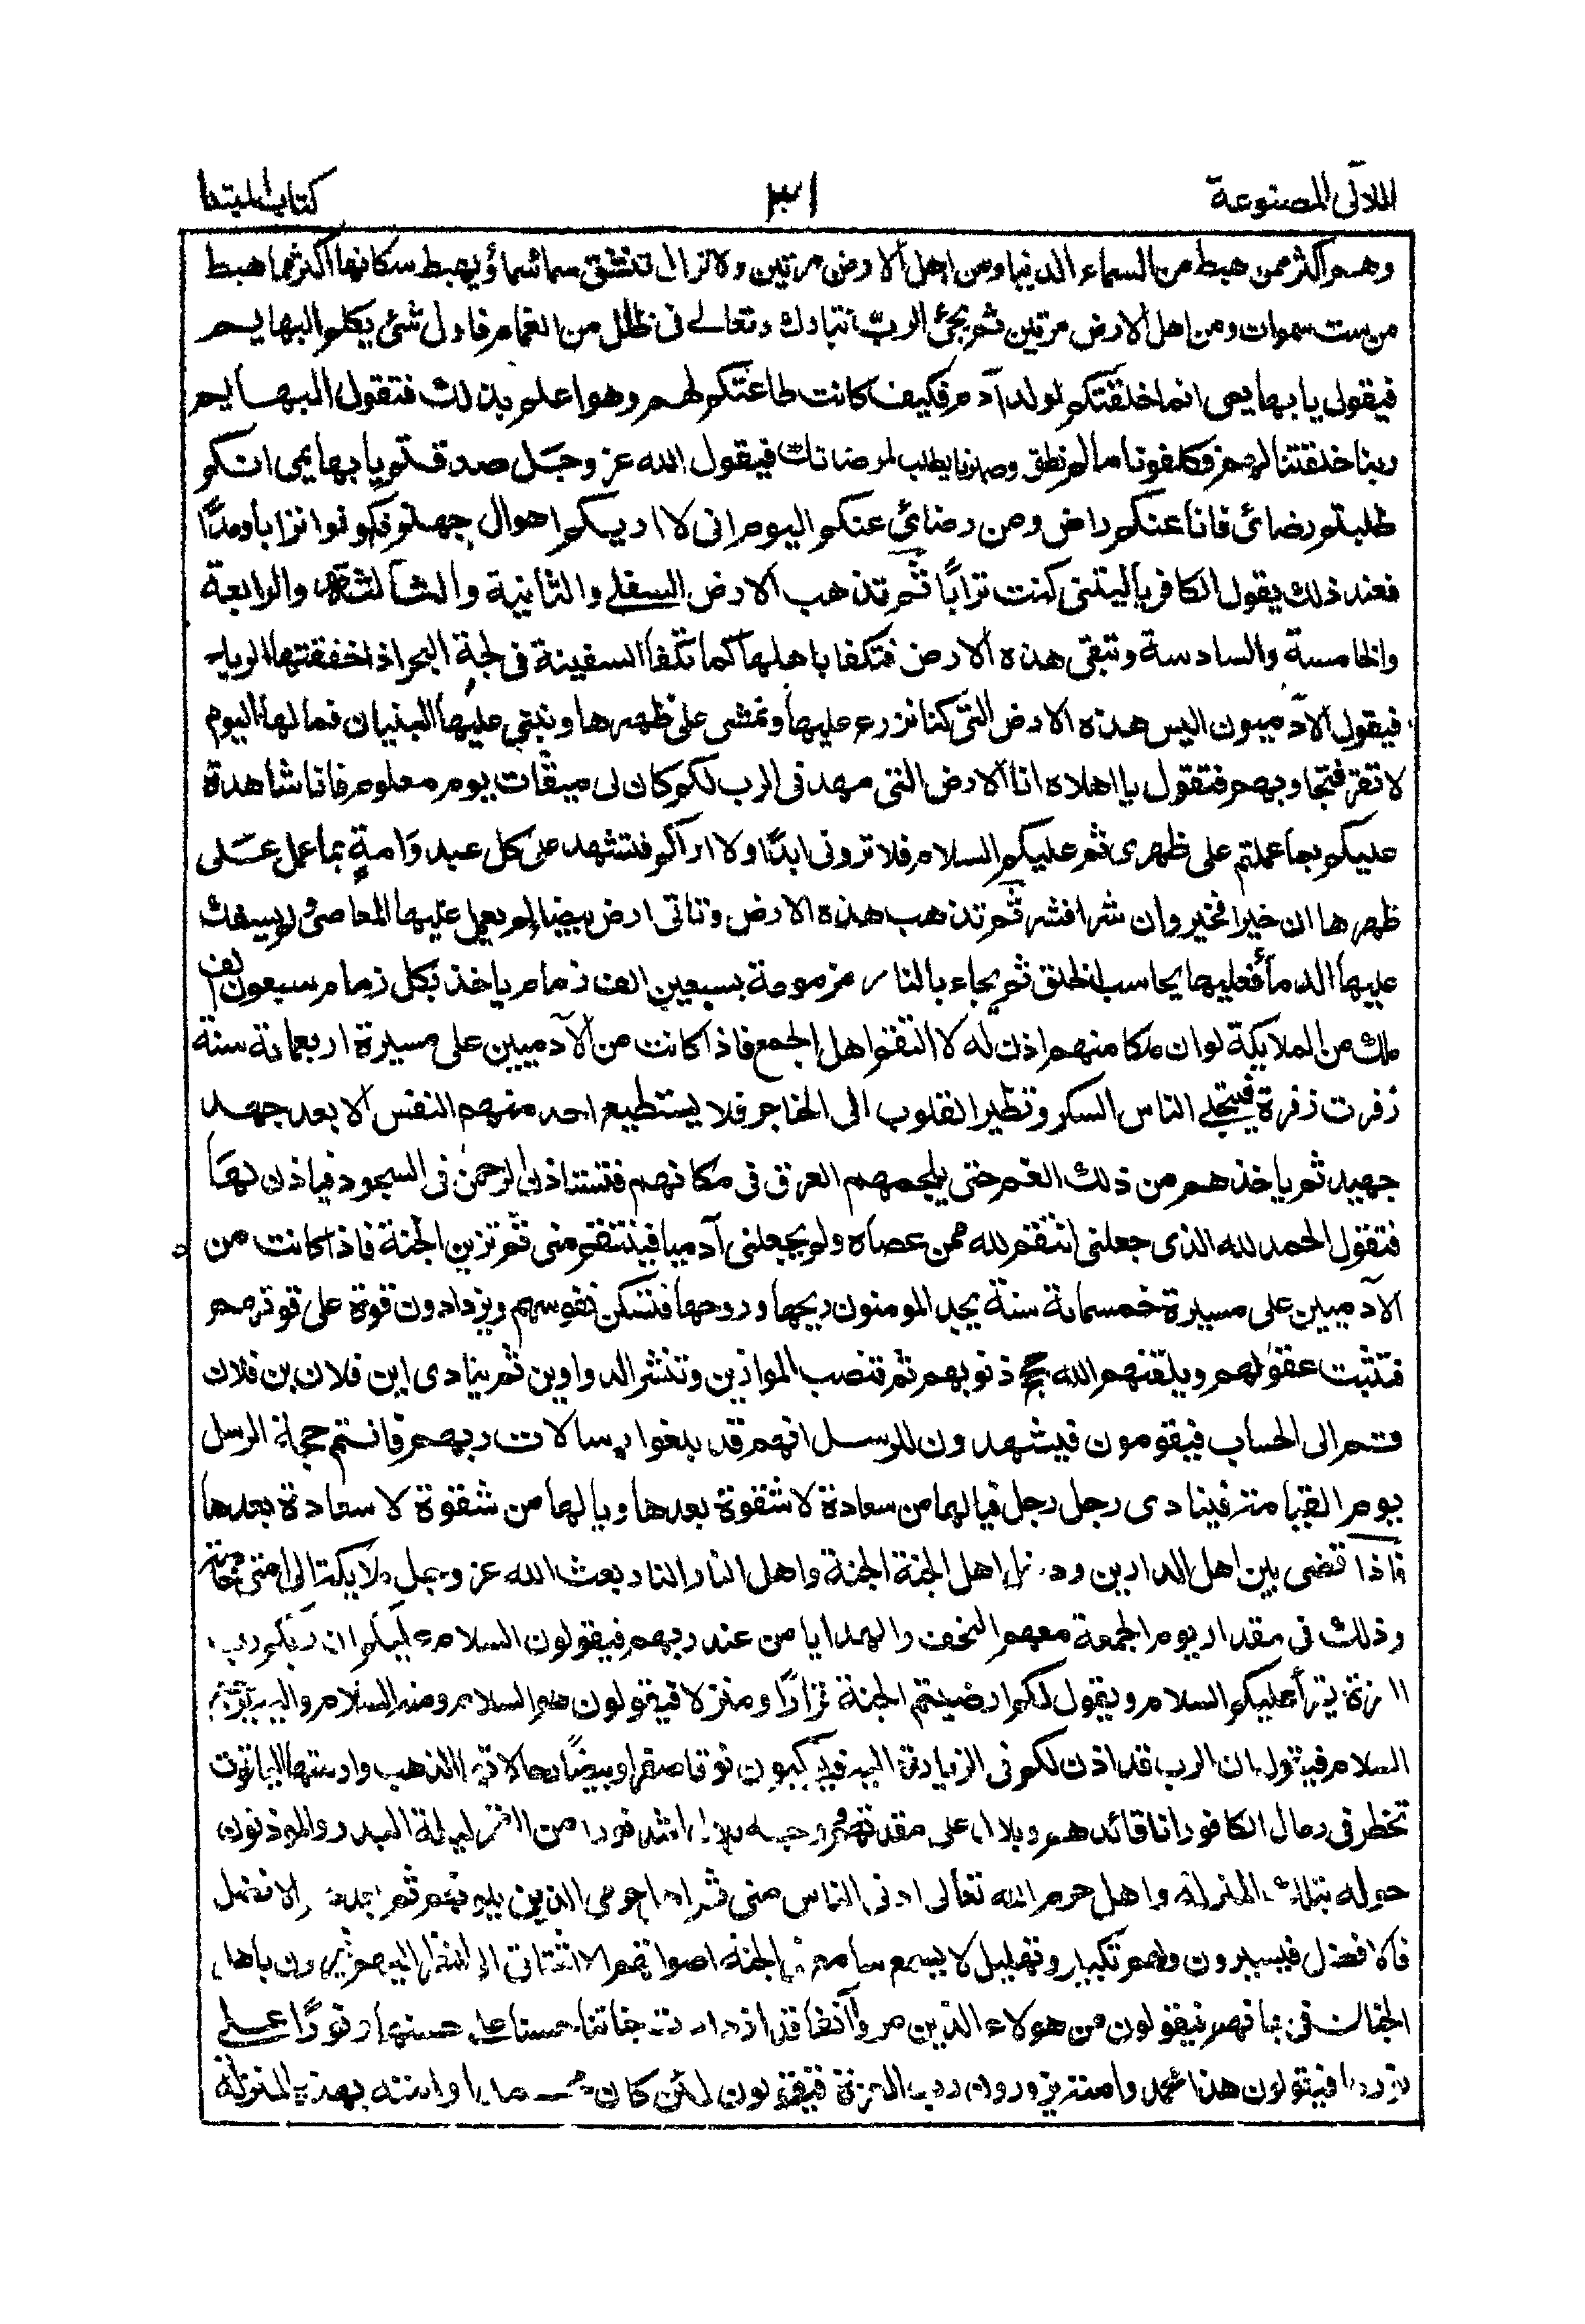 اللآلى المصنوعة
٣١
كتاب المبتدا
وهم اكثر ممن هبط من السماء الدنيا ومن اهل الارض مرتين ولا تزال تنشق سماء سماء ويهبط سكانها اكثر مما هبط
من ست سموات ومن اهل الارض مرتين ثم يجئ الرب تبارك وتعالى فى ظلل من الغمام فاول شئ يكلم البهايم
فيقول يا بهايمى انما خلقتكم لولد آدم فكيف كانت طاعتكم لهم وهو اعلم بذلك فتقول البهايم
ربنا خلقتنا لهم فكلفونا ما لم نطق وصبرنا بطلب لمرضاتك فيقول الله عز وجل صدقتم يا بهايمى انكم
طلبتم رضائى فانا عنكم راض ومن رضائى عنكم اليوم انى لا اريكم اهوال جهنم فكونوا ترابا ومدرًا
فعند ذلك يقول الكافر ياليتنى كنت ترابًا ثم تذهب الارض السفلى والثانية والثالثة والرابعة
والخامسة والسادسة وتبقى هذه الارض فتكفا باهلها كما تكفا السفينة فى لجة البحر اذا خفقتها الرياح
فيقول الآدميون اليس هذه الارض التى كنا نزرع عليها ونمشى على ظهرها ونبنى عليها البنيان فما لها اليوم
لا تقر فتجاوبهم فتقول يا اهلاه انا الارض التى مهدنى الرب لكم كان لى ميقات يوم معلوم فانا شاهدة
عليكم بما عملتم على ظهرى ثم عليكم السلام فلا ترونى ابدًا ولا اراكم فتشهد على كل عبد وامةٍ بما عمل على
ظهرها ان خيرا فخير وان شرا فشر ثم تذهب هذه الارض وتاتى ارض بيضا لم يعمل عليها المعاصى ولم يسفك
عليها الدما فعليها يحاسب الخلق ثم يجاء بالنار مزمومة بسبعين الف زمام ياخذ بكل زمام سبعون الف
ملك من الملايكة لو ان ملكا منهم اذن له لا التقم اهل الجمع فاذا كانت من الآدميين على مسيرة اربعمائة سنة
زفرت زفرة فيتجلى الناس السكر وتطير القلوب الى الحناجر فلا يستطيع احد منهم النفس الا بعد جهد
جهيد ثم ياخذهم من ذلك الغم حتى يلجمهم العرق فى مكانهم فتستاذن الرحمن فى السجود فياذن لها
فتقول الحمد لله الذى جعلنى انتقم لله ممن عصاه ولم يجعلنى آدميا فينتقم منى ثم تزين الجنة فاذا كانت من
الآدميين على مسيرة خمسمائة سنة يجد المومنون ريحها وروحها فتسكن نفوسهم ويزدادون قوة على قوتهم
فتثبت عقولهم ويلقنهم الله حجج ذنوبهم ثم تنصب الموازين وتنشر الدواوين ثم ينادى اين فلان بن فلان
قم الى الحساب فيقومون فيشهدون للرسل انهم قد بلغوا رسالات ربهم فانتم حجة الرسل
يوم القيامة فينادى رجل رجل فيالها من سعادة لا شقوة بعدها ويالها من شقوة لا سعادة بعدها
فاذا قضى بين اهل الدارين ودخل اهل الجنة الجنة واهل النار النار بعث الله عز وجل ملايكة الى امتى خاصة
وذلك فى مقدار يوم الجمعة معهم التحف والهدايا من عند ربهم فيقولون السلام عليكم ان ربكم رب
العزة يقرأ عليكم السلام ويقول لكم ارضيتم الجنة قرارًا ومنزلا فيقولون هو السلام ومنه السلام واليه يرجع
السلام فيقول ان الرب قد اذن لكم فى الزيادة اليه فيركبون نوقا صفرا وبيضًا رحالاتها الذهب وازمتها الياقوت
تخطر فى رمال الكافور انا قائدهم وبلال على مقدمتهم ووجه بلال اشد نورا من القمر ليلة البدر والموذنون
حوله بتلك المنزلة واهل حرم الله تعالى ادنى الناس منى ثم اهل حرمى الذين يلونهم ثم بعدهم الافضل
فالافضل فيسيرون ولهم تكبير وتهليل لا يسمع سامع فى الجنة اصواتهم الا اشتاق الى النظر اليهم فيمرون باهل
الجنان فى جنانهم فيقولون من هولاء الذين مروا آنفا قد ازدادت جناتنا حسنا على حسنها ونورًا على
نورها فيقولون هذا محمد وامته يزورون رب العزة فيقولون لئن كان محمد وامته بهذه المنزلة